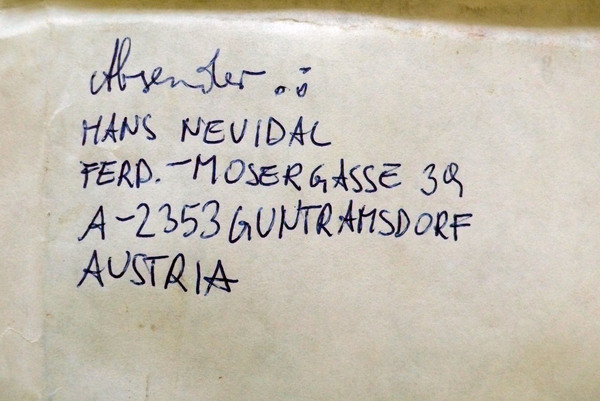 Absender:
HANS NEVIDAL
FERD.-MOSERGASSE 39
A-2353 GUNTRAMSDORF
AUSTRIA